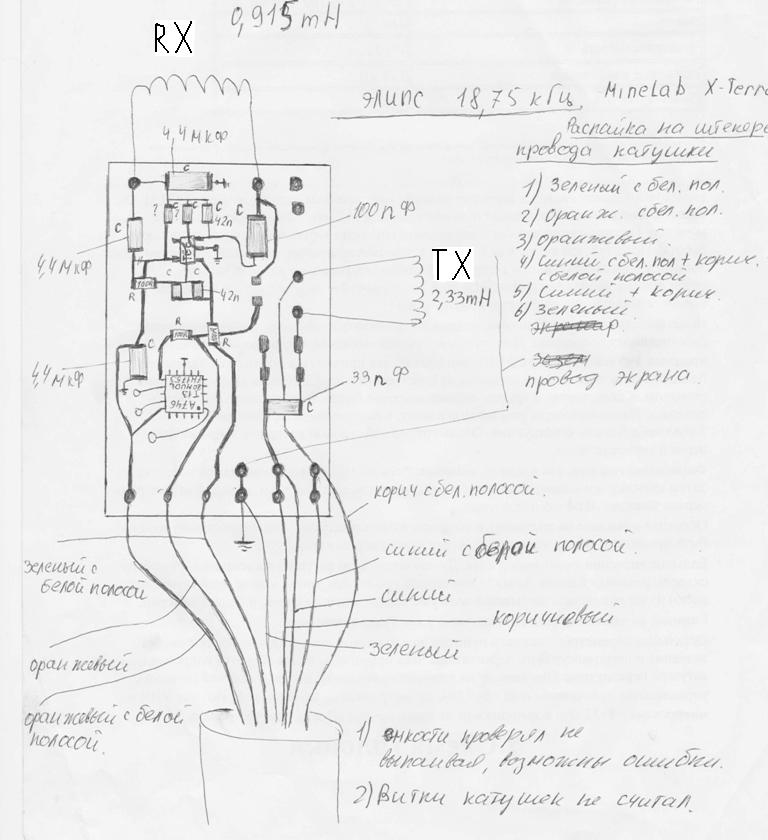 0,915 mH
RX
элипс 18,75 кГц. MineLab X-Terra
Распайка на штекере
провода катушки
1) Зеленый с бел. пол.
2) Оранж. с бел. пол.
3) Оранжевый.
4) Синий с бел. пол + корич.
с белой полосой
5) Синий + корич.
6) Зеленый.
провод экрана.
4,4 мкф
C
? C
? C
C
42п
C
C
100 пФ
4,4 мкф
100R
R
C
C
42п
TX
2,33mH
100R
R
R
C
4,4 мкф
33пФ
C
корич с бел. полосой.
синий с белой полосой.
синий
коричневый
зеленый
зеленый с
белой полосой
оранжевый
оранжевый с белой
полосой.
1) емкости проверял не
выпаивая, возможны ошибки.
2) Витки катушек не считал.